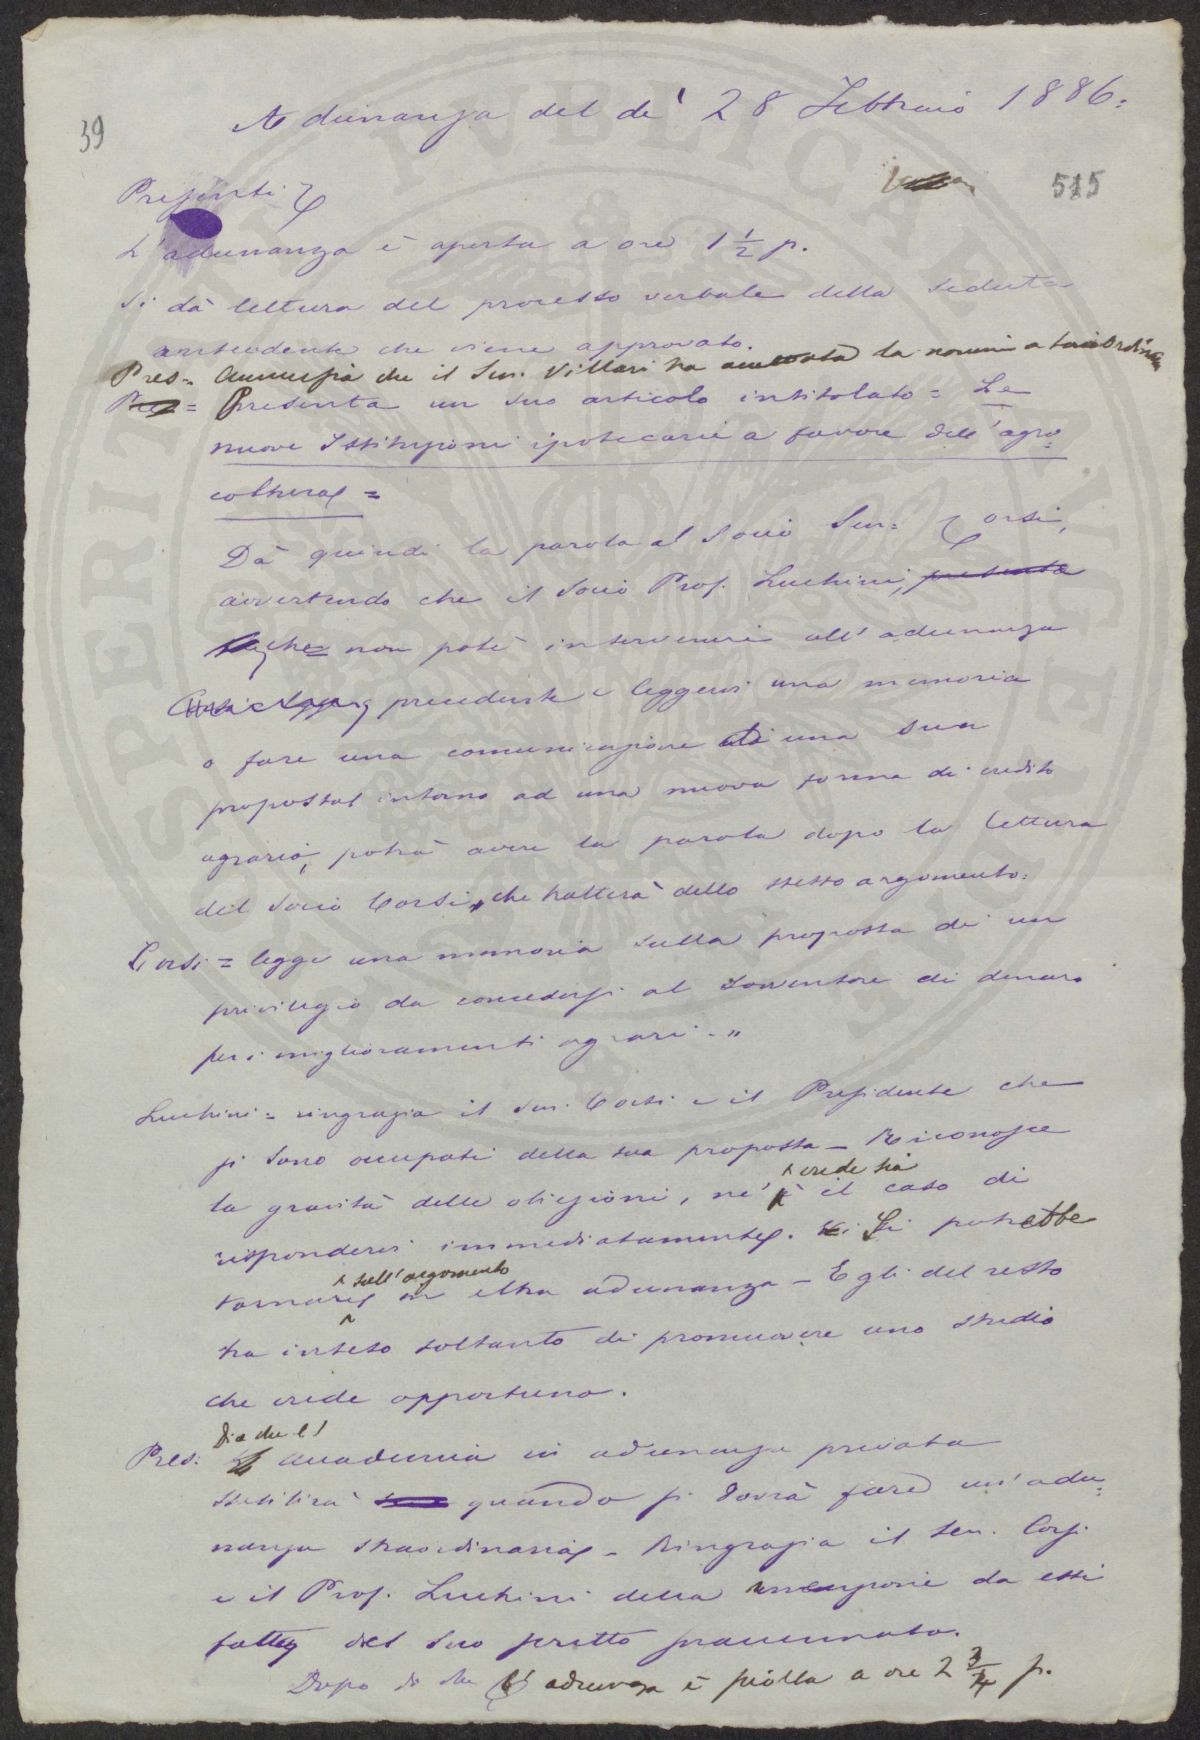 39
Adunanza del dì 28 Febbraio 1886.
515
Presenti
L'adunanza è aperta a ore 1 1/2 p.
Si dà lettura del processo verbale della seduta
antecedente che viene approvato.
Pres= Annunzia che il Sen. Villari ha accettata la nomina a Socio Ordin
Pres = Presenta un suo articolo intitolato = Le
nuove Istituzioni ipotecarie a favore dell'agri=
coltura =
Dà quindi la parola al Socio Sen= Corsi,
avvertendo che il Socio Prof. Luchini, presente
che non potè intervenire all'adunanza
precedente e leggervi una memoria
o fare una comunicazione di una sua
proposta intorno ad una nuova forma di credito
agrario, potrà avere la parola dopo la lettura
del Socio Corsi, che tratterà dello stesso argomento.
Corsi = legge una memoria sulla proposta di un
privilegio da concedersi al sovventore di denaro
per i miglioramenti agrari - "
Luchini = ringrazia il Sen. Corsi e il Presidente che
si sono occupati della sua proposta - Riconosce
la gravità delle obiezioni, nè crede sia il caso di
rispondervi immediatamente. Si potrebbe
tornare sull'argomento in altra adunanza - Egli del resto
ha inteso soltanto di promuovere uno studio
che crede opportuno.
Pres: Dice che l'Accademia in adunanza privata
stabilirà quando si dovrà fare un'adu=
nanza straordinaria - Ringrazia il Sen. Corsi
e il Prof. Luchini della menzione da essi
fatta del suo scritto
Dopo di che l'adunanza è sciolta a ore 2 3/4 p.